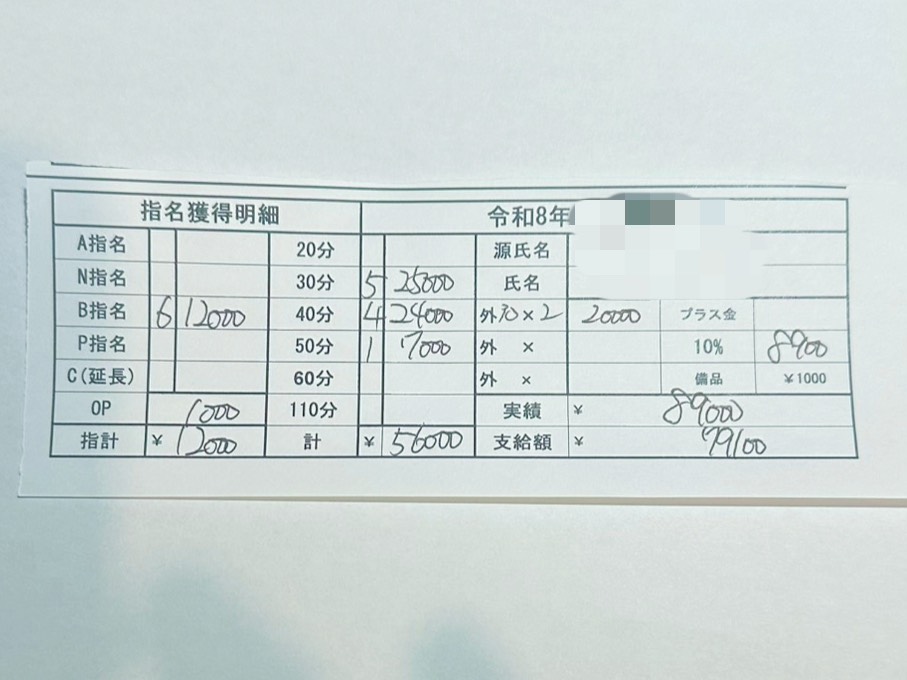 指名獲得明細 令和8年
A指名 20分 源氏名
N指名 30分 5 25000 氏名
B指名 6 12000 40分 4 24000 外70×2 20000 プラス金
P指名 50分 1 7000 外 × 10% 8900
C(延長) 60分 外 × 備品 ¥1000
OP 1000 110分 実績 ¥ 89000
指計 ¥ 12000 計 ¥ 56000 支給額 ¥ 79100